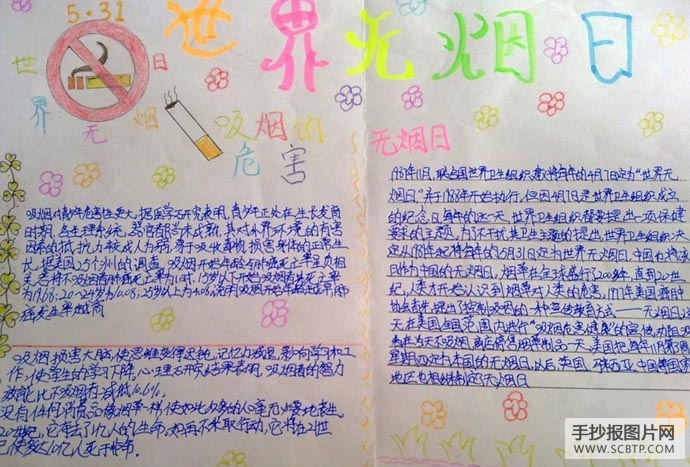 5.31
世界无烟日
世界无烟日
吸烟的
危害
吸烟对青少年危害性更大,据医学研究表明,青少年正处在生长发育
时期,各生理系统、器官都尚未成熟,其对外界环境的有害
因素的抵抗力较成人为弱,易于吸收毒物,损害身体的正常生
长。据美国25个州的调查,吸烟开始年龄与肺癌死亡率呈负相
关。若将不吸烟者肺癌死亡率定为1时,15岁以下开始吸烟者其死亡率
为19.68;20-24岁为10.08;25岁以上为4.08。说明吸烟开始年龄
吸烟损害大脑,使思维变得迟钝,记忆力减退,影响学习和工
作,使学生的学习下降。心理研究结果表明,吸烟者的智力
效能比不吸烟者减低10.6%。
没有任何消费品像烟草一样,使如此众多的人毫无必要地丧生。
20世纪,它夺去了1亿人的生命。如再不采取行动,它将在21世
纪使多达10亿人死于非命。
无烟日
1987年11月,联合国世界卫生组织建议将每年的4月7日定为“世界无
烟日”,并于1988年开始执行,但因4月7日是世界卫生组织成立
的纪念日,每年的这一天,世界卫生组织都要提出一项保健
要求的主题,为了不干扰其卫生主题的提出,世界卫生组织决
定从1989年起将每年的5月31日定为世界无烟日,中国也将该
日作为中国的无烟日。烟草在全球盛行了200多年,直到20世
纪,人类才开始认识到烟草对人类的危害。1977年,美国癌肿
协会首先提出了控制吸烟的一种宣传教育方式——无烟日。这
天,在美国全国范围内进行“吸烟危害健康”的宣传,劝阻烟
民在当天不吸烟,商店停售烟草制品一天,美国把每年11月第3周
星期四定为本国的无烟日。以后,英国、马来西亚、中国香港等
地区也相继制定了无烟日
手抄报图片网
WWW.SCBTP.COM